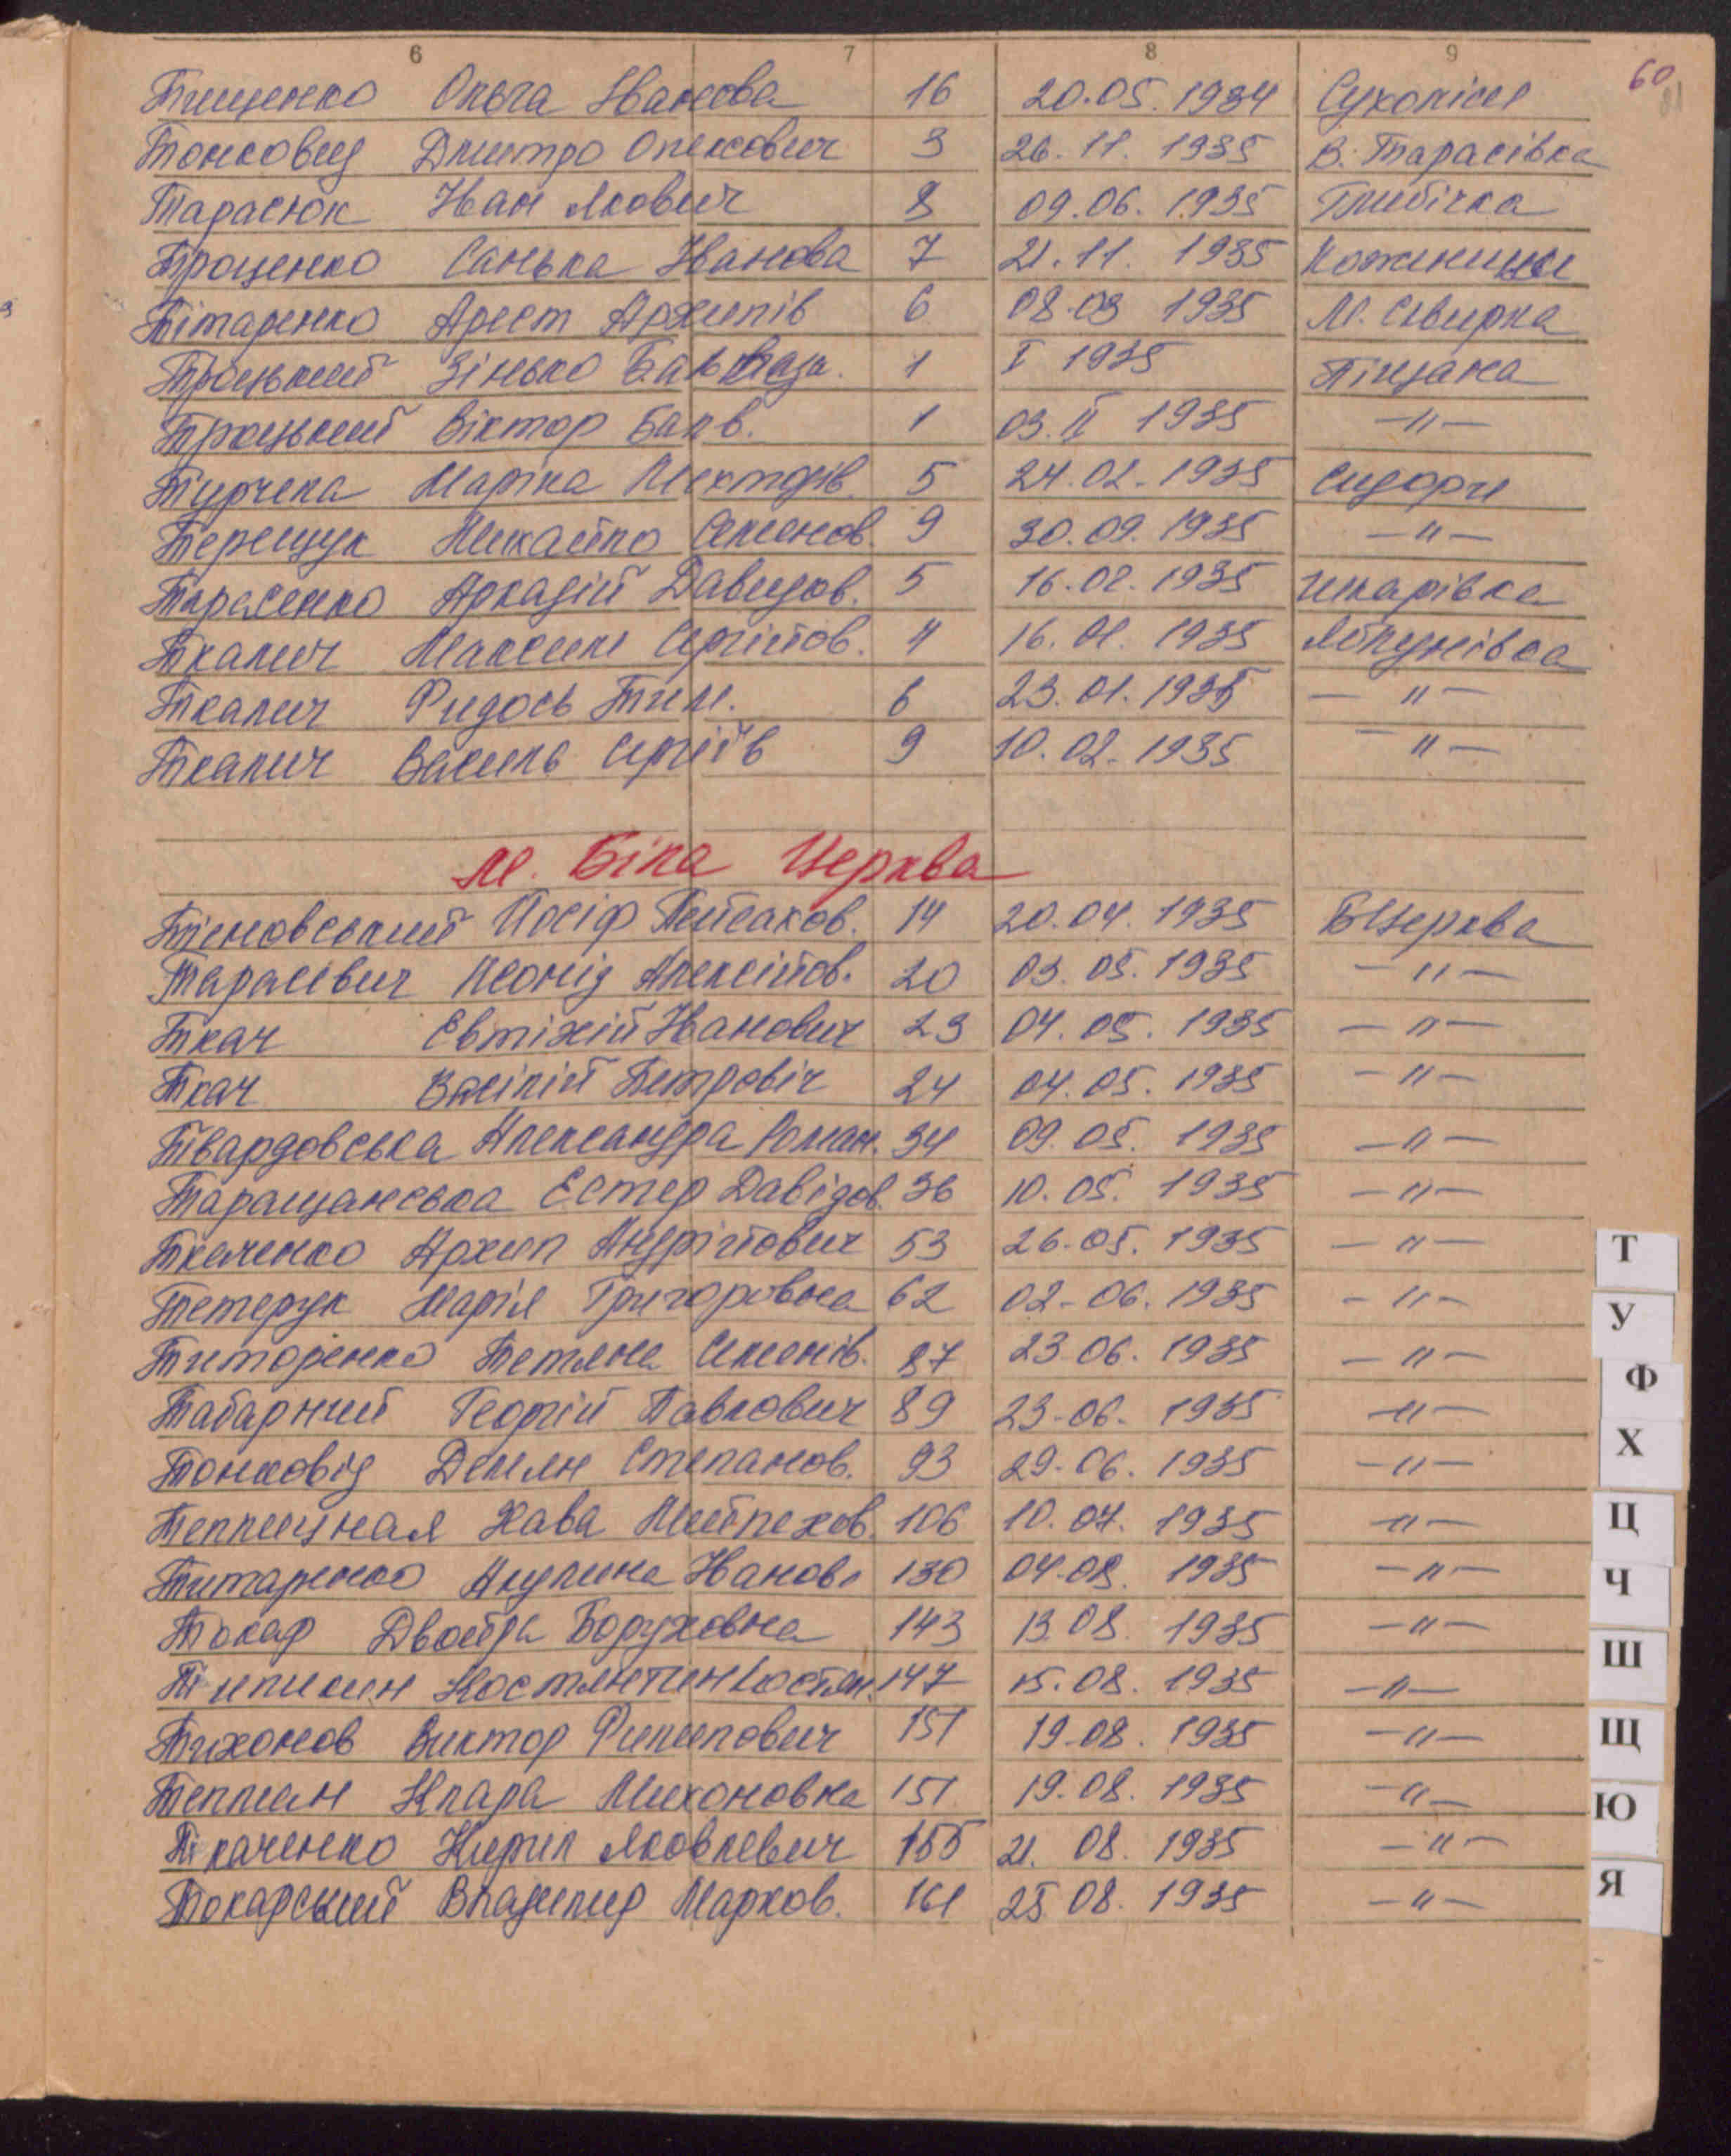 6 7 8 9
60
Тищенко Ольга Іванова 16 20.05.1934 Сухоліси
Тонковид Дмитро Олексович 3 26.11.1935 В. Тарасівка
Тарасюк Іван Якович 8 09.06.1935 Глибічка
Троценко Санька Іванова 7 21.11.1935 Кожаники
Тітаренко Арест Архипів 6 08.03 1935 М. Сквирка
Троцький Зінько 1 I 1935 Піщана
Троцький Віктор Балв. 1 03.II 1935 -"-
Турчека Марika 5 24.02.1935 Сидори
Терещук Михайло Семенов. 9 30.09.1935 -"-
Тарасенко Аркадій Давидов. 5 16.02.1935 Шкарівка
Ткалич Максим Сергійов. 4 16.01.1935 Яблунівка
Ткалич Фидось Тим. 6 23.01.1935 - " -
Ткалич Василь Сергіїв 9 10.02.1935 - " -
м. Біла Церква
Тіновський Йосіф Пейсахов. 14 20.04.1935 БЦерква
Тарасевич Леонід Алексійов. 20 03.05.1935 -"-
Ткач Євтіхій Іванович 23 04.05.1935 -"-
Ткач Васілій Петровіч 24 04.05.1935 -"-
Твардовська Александра Роман. 34 09.05.1935 -"-
Таращанська Естер Давідов. 36 10.05.1935 -"-
Ткаченко Архип Андрійович 53 26.05.1935 -"-
Тетерук Марія Григоровна 62 02-06.1935 -"-
Титоренко Тетяна Семенів. 87 23.06.1935 -"-
Табарний Георгій Павлович 89 23.06.1935 -"-
Тонковід Демян Степанов. 93 29.06.1935 -"-
Теплицная Хава Мейлехов. 106 10.07.1935 -"-
Титаренко Акулина Іванов. 130 04.08.1935 -"-
Токар Двойра Боруховна 143 13.08.1935 -"-
Типикин Костянтин Костян. 147 15.08.1935 -"-
Тихонов Виктор Филипович 151 19.08.1935 -"-
Теплман Клара Михоновна 151 19.08.1935 -"-
Ткаченко Кирил Яковлевич 155 21.08.1935 -"-
Токарський Владимир Марков. 161 25 08.1935 -"-
Т
У
Ф
Х
Ц
Ч
Ш
Щ
Ю
Я